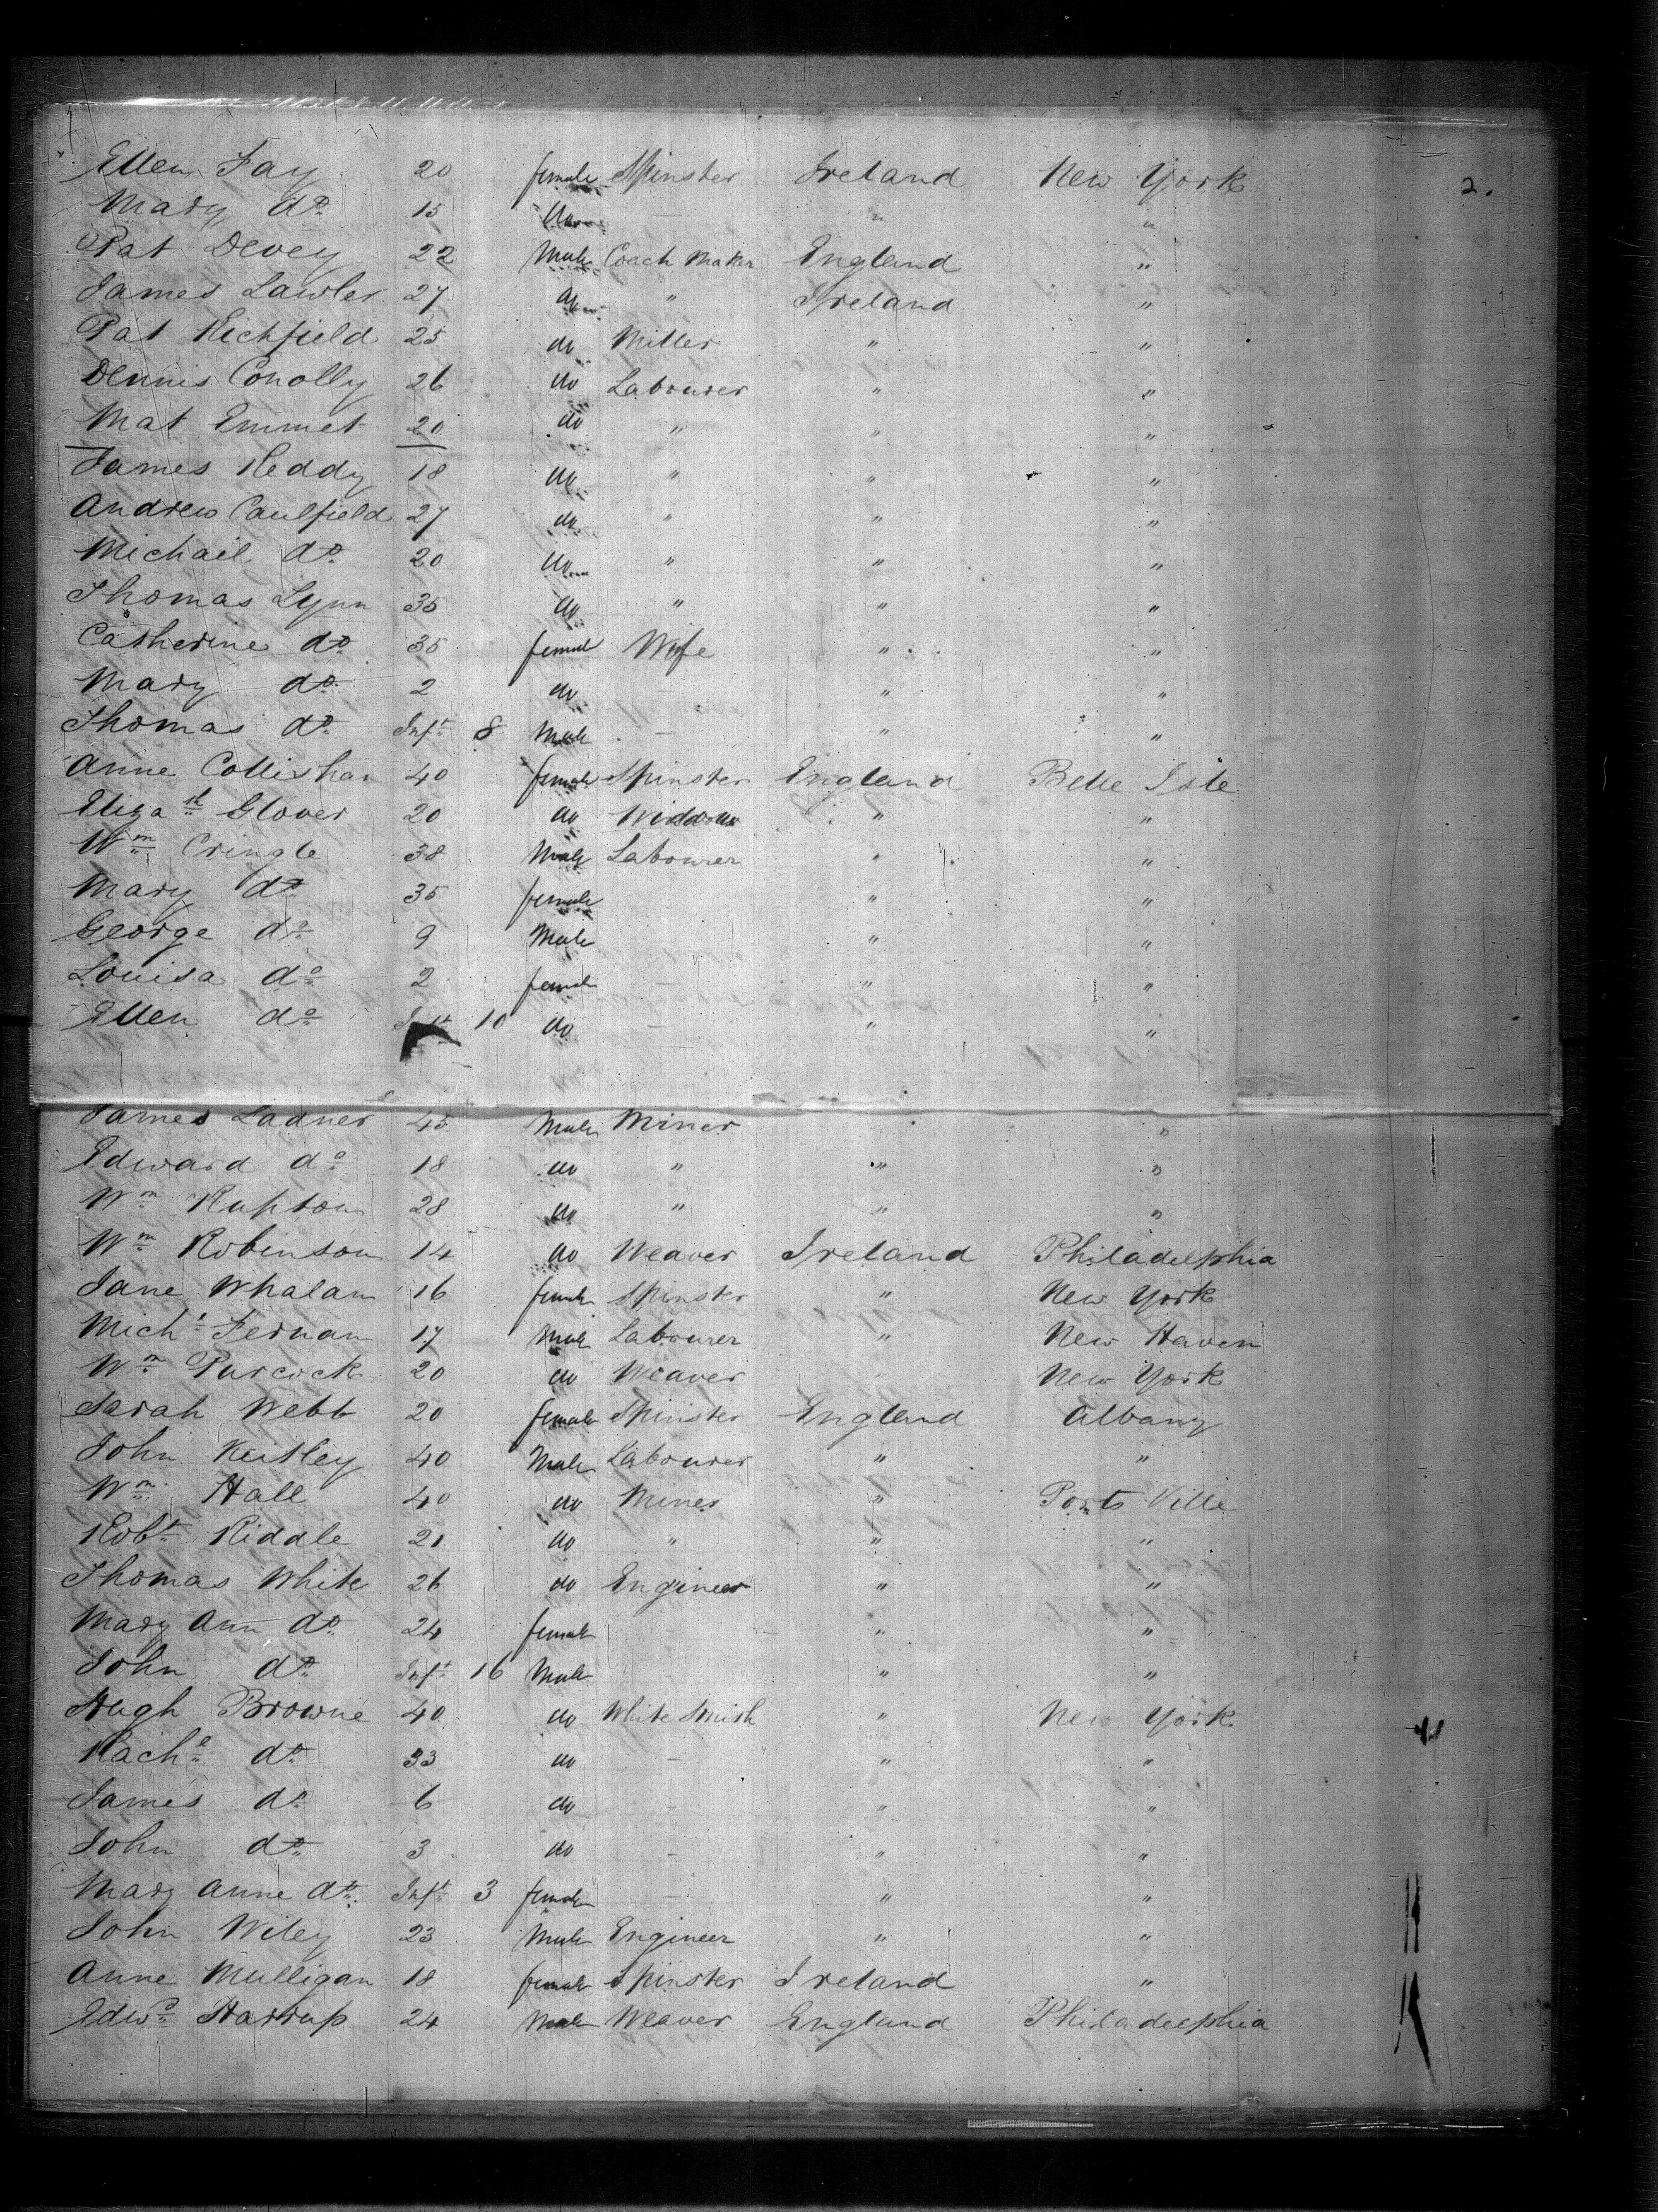 2.
Ellen Fay 20 female Spinster Ireland New York
Mary do 15 do — " "
Pat Devey 22 Male Coach Maker England "
James Lawler 27 do " Ireland "
Pat Hichfield 25 do Miller " "
Dennis Conolly 26 do Labourer " "
Mat Emmet 20 do " " "
James Reddy 18 do " " "
Andrew Caulfield 27 do " " "
Michail do 20 do " " "
Thomas Lynn 35 do " " "
Catherine do 35 female Wife " "
Mary do 2 do — " "
Thomas do Inft 8 Male — " "
Anne Collishan 40 female Spinster England Belle Isle
Elizath Glover 20 do Widdow " "
Wm Cringle 38 Male Labourer " "
Mary do 35 female " "
George do 9 Male " "
Louisa do 2 female — " "
Ellen do Inft 10 do — " "
James Ladner 45 Male Miner "
Edward do 18 do " " "
Wm Rupton 28 do " " "
Wm Robinson 14 do Weaver Ireland Philadelphia
Jane Whalam 16 female Spinster " New York
Michl Fernan 17 Male Labourer " New Haven
Wm Purcock 20 do Weaver New York
Sarah Webb 20 female Spinster England Albany
John Keisley 40 Male Labourer " "
Wm Hall 40 do Miner " Ports Ville
Robt Riddle 21 do " " "
Thomas White 26 do Engineer " "
Mary Ann do 24 female " "
John do Inft 16 Male " "
Hugh Browne 40 do White Smith " New York
Rachl do 33 do — " "
James do 6 do — " "
John do 3 do — " "
Mary Anne do Inft 3 female — " "
John Wiley 23 Male Engineer " "
Anne Mulligan 18 female Spinster Ireland "
Edwd Harrup 24 Male Weaver England Philadelphia